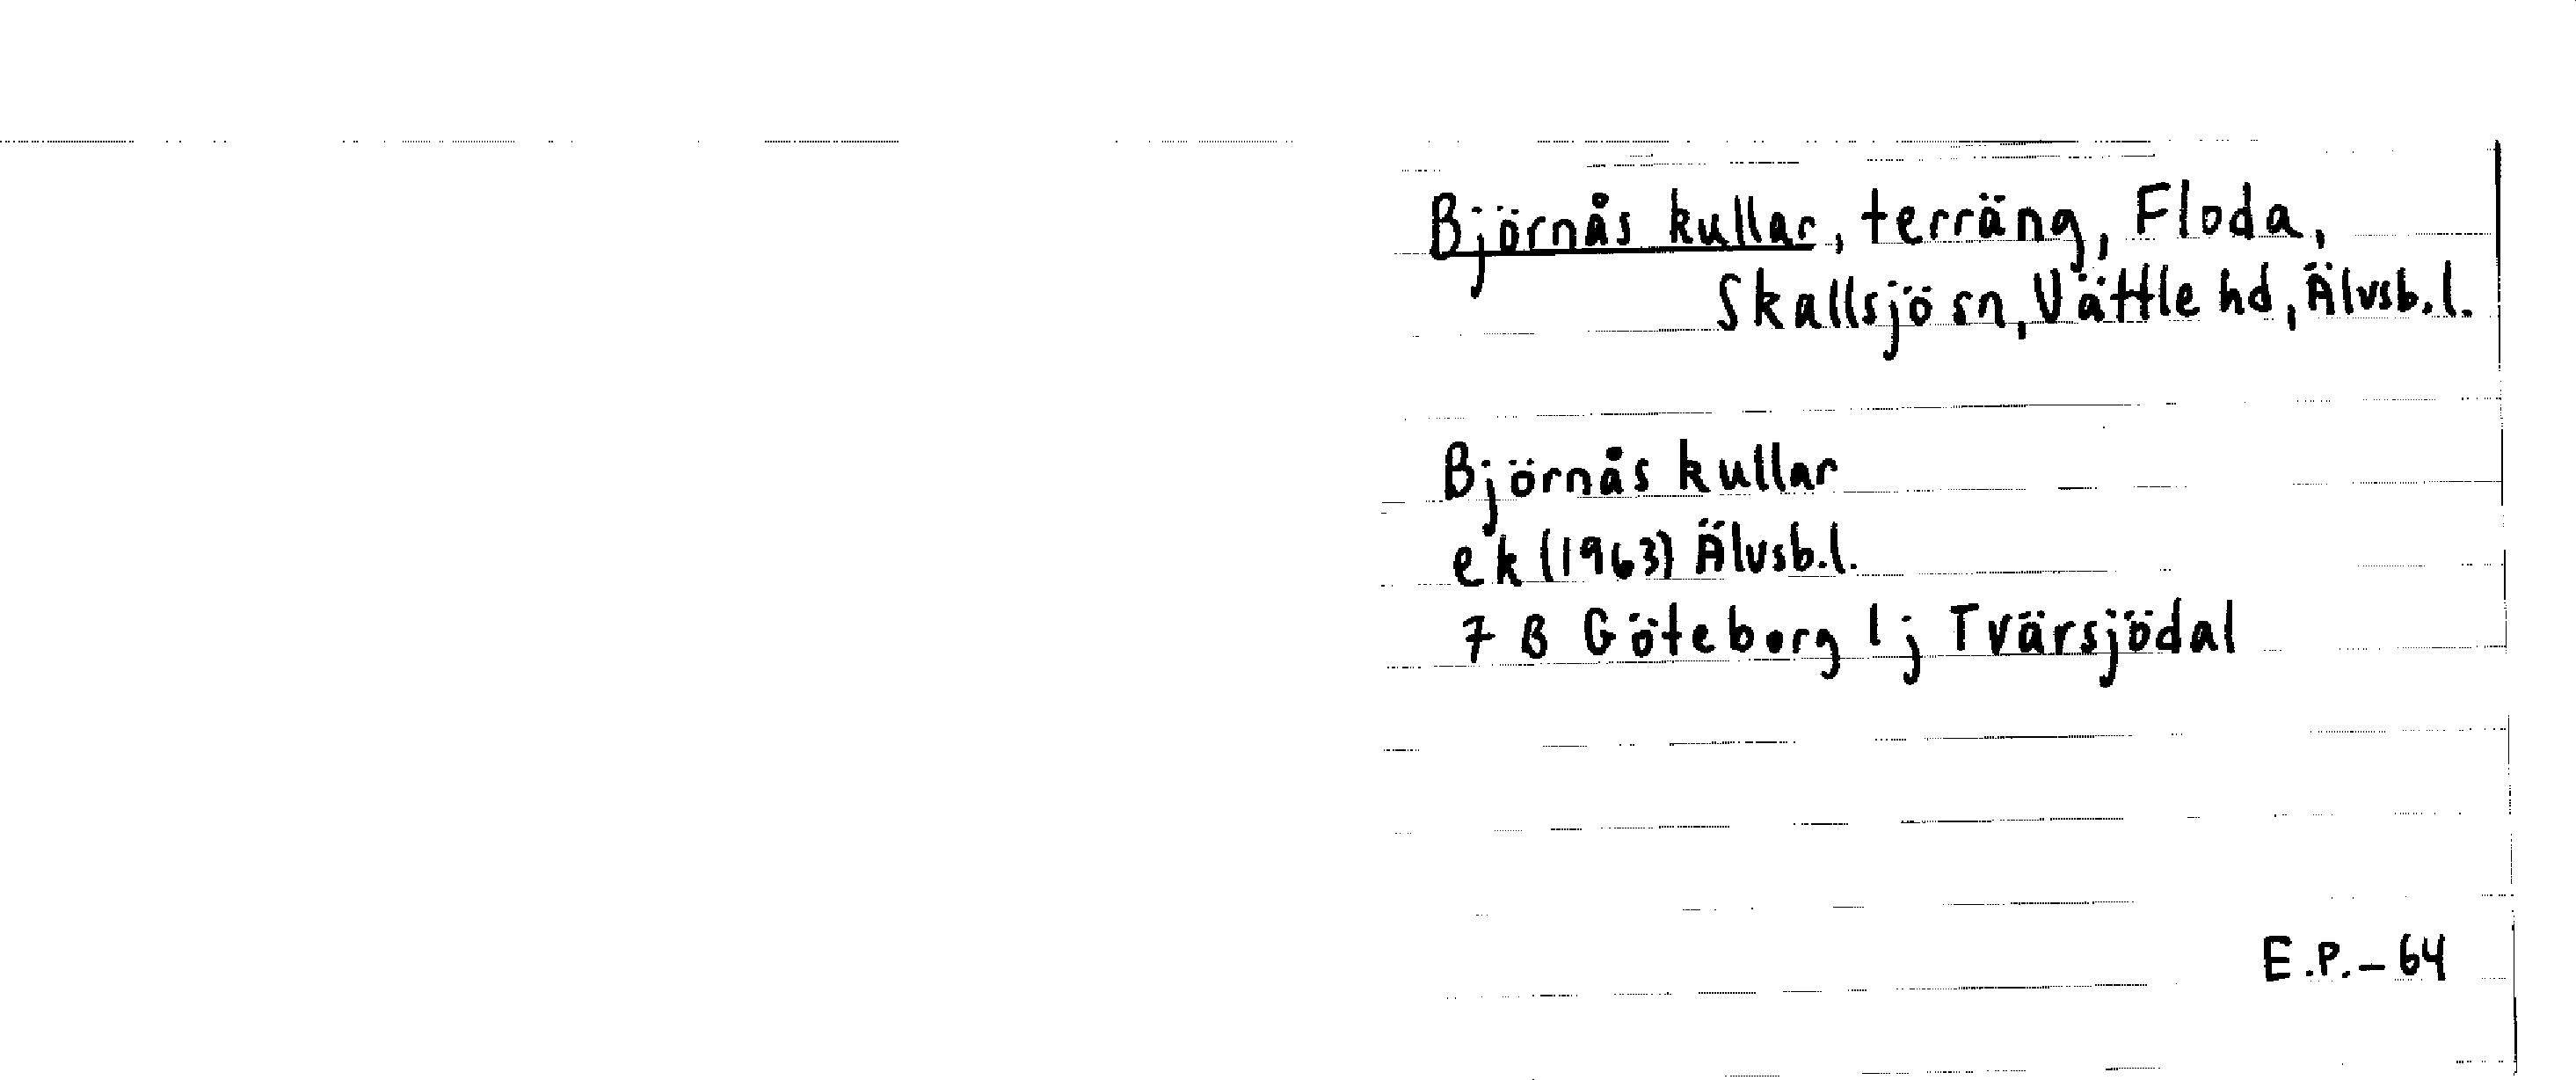 Björnås kullar, terräng, Floda,
Skallsjö sn, Vättle hd, Älvsb.l.
Björnås kullar
ek (1963) Älvsb.l.
7 B Göteborg 1 j Tvärsjödal
E.P. – 64